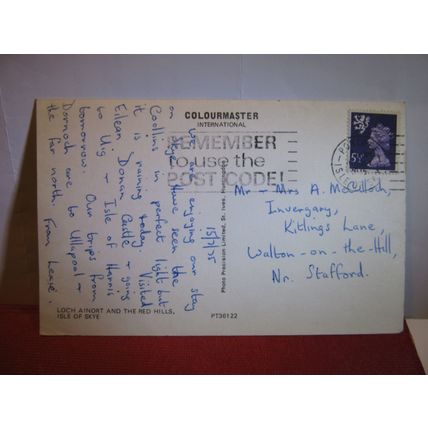 COLOURMASTER
INTERNATIONAL
REMEMBER
to use the
POST CODE!
5½P
15/7/75
We are enjoying our stay
on Skye. Have seen the
Coollins in perfect light but
it is raining today. Visited
Eilean Donan Castle & going
to Uig & Isle of Harris
tomorrow. Our trips from
Dornoch are to Ullapool &
the far north. From
Mr & Mrs A. McCulloch,
Invergany,
Kitlings Lane,
Walton-on-the-Hill,
Nr. Stafford.
Photo Precision Limited, St. Ives,
LOCH AINORT AND THE RED HILLS,
ISLE OF SKYE
PT36122